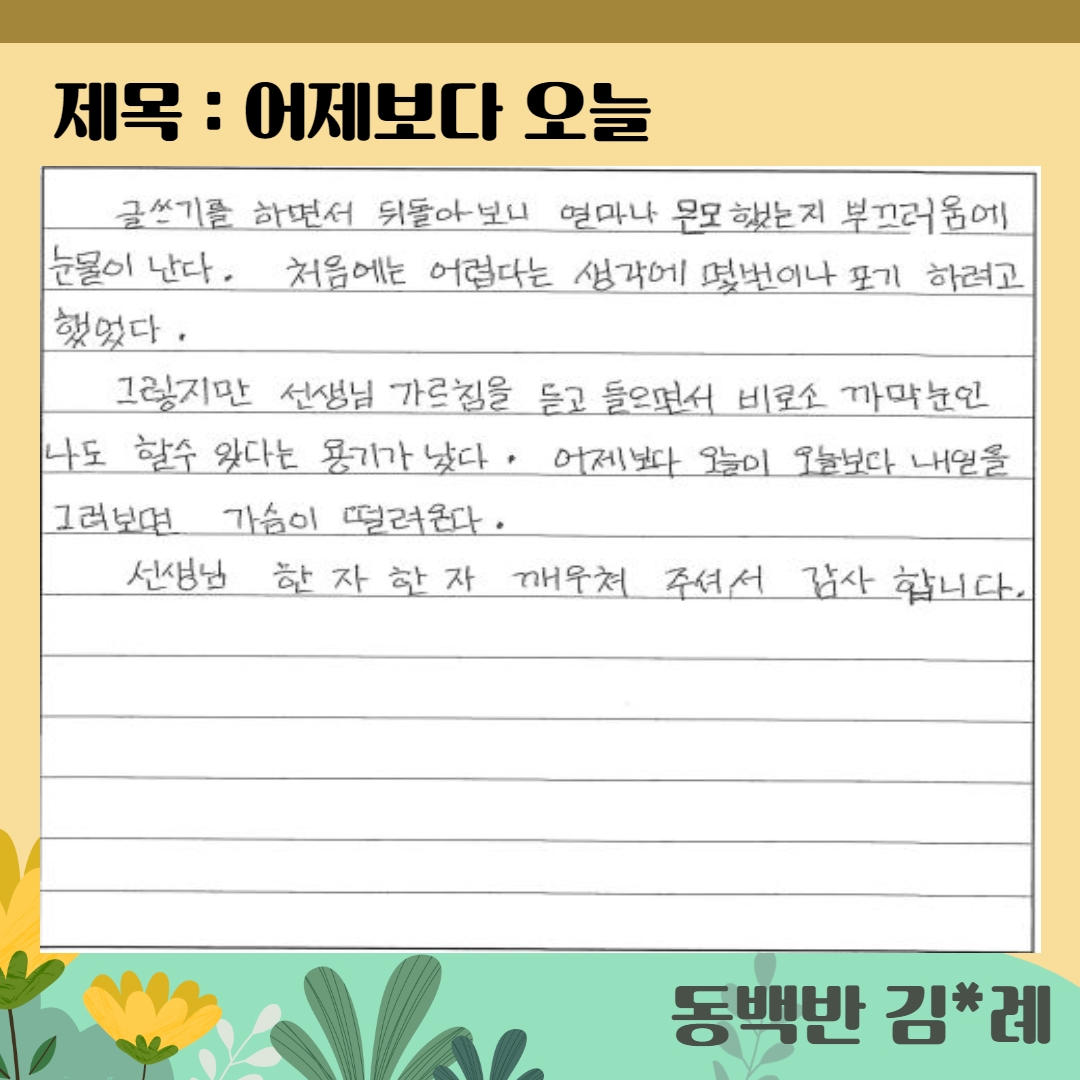 제목 : 어제보다 오늘
글쓰기를 하면서 뒤돌아보니 열마나 문모했는지 부끄러움에
눈물이 난다. 처음에는 어렵다는 생각에 몇번이나 포기 하려고
했었다.
그렇지만 선생님 가르침을 듣고 들으면서 비로소 까막눈인
나도 할수 있다는 용기가 났다. 어제보다 오늘이 오늘보다 내일을
그려보면 가슴이 떨려온다.
선생님 한 자 한 자 깨우쳐 주셔서 감사 합니다.
동백반 김*례